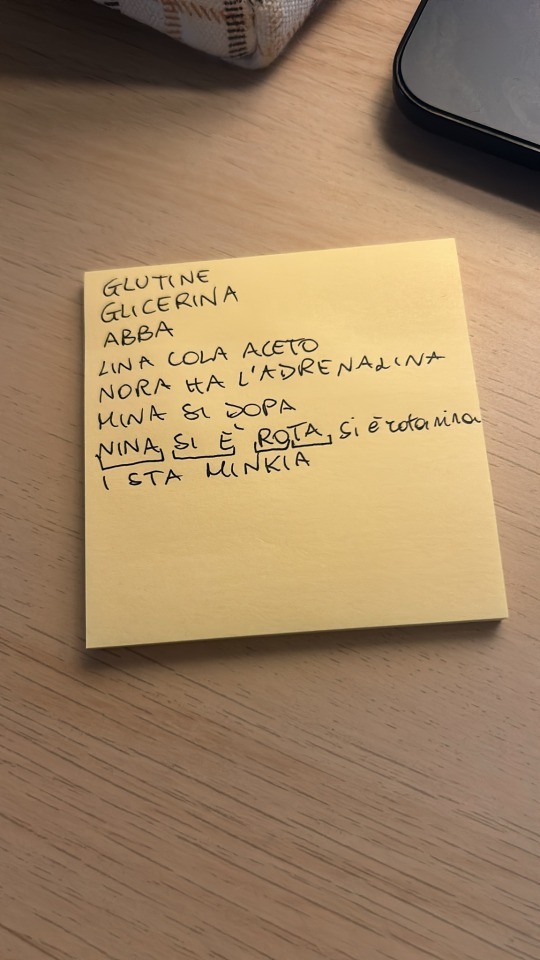 GLUTINE
GLICERINA
ABBA
LINA COLA ACETO
NORA HA L'ADRENALINA
MINA SI DOPA
NINA SI È ROTA si è rota nina
I STA MINKIA